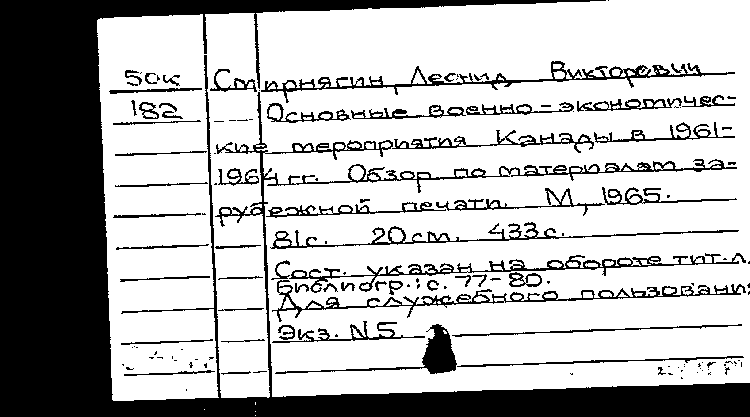 50к Смирнягин, Леонид Викторович
182 Основные военно-экономичес-
кие мероприятия Канады в 1961-
1964 гг. Обзор по материалам за-
рубежной печати. М., 1965.
81с. 20см. 433с.
Сост. указан на обороте тит.л.
Библиогр.: с. 77-80.
Для служебного пользования
Экз. N5.